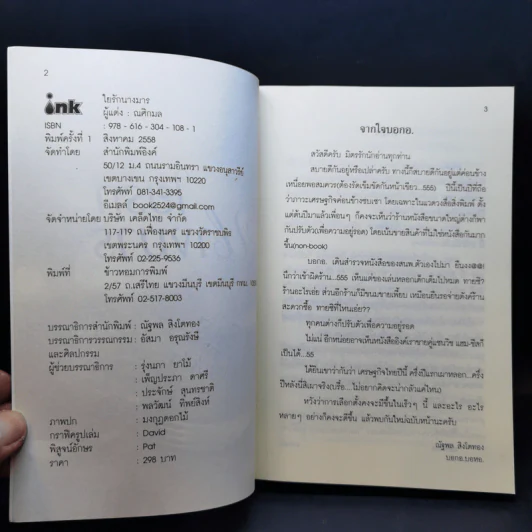 2
ink
ใยรักนางมาร
ผู้แต่ง : ณศิกมล
ISBN : 978 - 616 - 304 - 108 - 1
พิมพ์ครั้งที่ 1 สิงหาคม 2558
จัดทำโดย สำนักพิมพ์อิงค์
50/12 ม.4 ถนนรามอินทรา แขวงอนุสาวรีย์
เขตบางเขน กรุงเทพฯ 10220
โทรศัพท์ 081-341-3395
อีเมลล์ book2524@gmail.com
จัดจำหน่ายโดย บริษัท เคล็ดไทย จำกัด
117-119 ถ.เฟื่องนคร แขวงวัดราชบพิธ
เขตพระนคร กรุงเทพฯ 10200
โทรศัพท์ 02-225-9536
พิมพ์ที่ ข้าวหอมการพิมพ์
2/57 ถ.เสรีไทย แขวงมีนบุรี เขตมีนบุรี กทม.
โทรศัพท์ 02-517-8003
บรรณาธิการสำนักพิมพ์ : ณัฐพล สิงโตทอง
บรรณาธิการวรรณกรรม : อัสมา อรุณรังษี
และศิลปกรรม
ผู้ช่วยบรรณาธิการ : รุ่งนภา ยาไม้
: เพ็ญประภา ดาศรี
: ประจักษ์ สุนทรชาติ
: พลวัฒน์ ทิพย์สิงห์
ภาพปก : มงกุฎดอกไม้
กราฟิครูปเล่ม : David
พิสูจน์อักษร : Pat
ราคา : 298 บาท
3
จากใจบอกอ.
สวัสดีครับ มิตรรักนักอ่านทุกท่าน
สบายดีกันอยู่หรือเปล่าครับ ทางนี้ก็สบายดีกันอยู่แต่ค่อนข้าง
เหนื่อยพอสมควร(ต้องรัดเข็มขัดกันหน้าเขียว...555) ปีนี้เป็นปีที่ถือ
ว่าภาวะเศรษฐกิจค่อนข้างซบเซา โดยเฉพาะในแวดวงสื่อสิ่งพิมพ์ ตั้ง
แต่ต้นปีมาแล้วเพื่อนๆ ก็คงจะเห็นว่าร้านหนังสือขนาดใหญ่ต่างก็พา
กันปรับตัว(เพื่อความอยู่รอด) โดยเน้นขายสินค้าที่ไม่ใช่หนังสือกันมาก
ขึ้น(non-book)
บอกอ. เดินสำรวจหนังสือของสนพ.ตัวเองไปมา ยืนงง@@!
นึกว่าเข้าผิดร้าน...555 เห็นแต่ของเล่นหลอกเด็กเต็มไปหมด ทายซิ?
ร้านอะไรเอ่ย ส่วนอีกร้านก็มีขนมขายเพียบ เหมือนยืนรอจ่ายตังค์ร้าน
สะดวกซื้อ ทายซิที่ไหนเอ่ย??
ทุกคนต่างก็ปรับตัวเพื่อความอยู่รอด
ไม่แน่ อีกหน่อยอาจเห็นหนังสืออิงค์เอาขายคู่แซนวิช แฮม-ชีสก็
เป็นได้...55
ได้ยินเขาว่ากันว่า เศรษฐกิจไทยปีนี้ ครึ่งปีแรกเผาหลอก...ครึ่ง
ปีหลังนี้สิเผาจริง(บรื๋อ...ไม่อยากคิดจะน่ากลัวแค่ไหน)
หวังว่าการเลือกตั้งคงจะมีขึ้นในเร็วๆ นี้ และอะไร อะไร
หลายๆ อย่างก็คงจะดีขึ้น แล้วพบกันใหม่ฉบับหน้านะครับ
ณัฐพล สิงโตทอง
บอกอ.บอหอ.